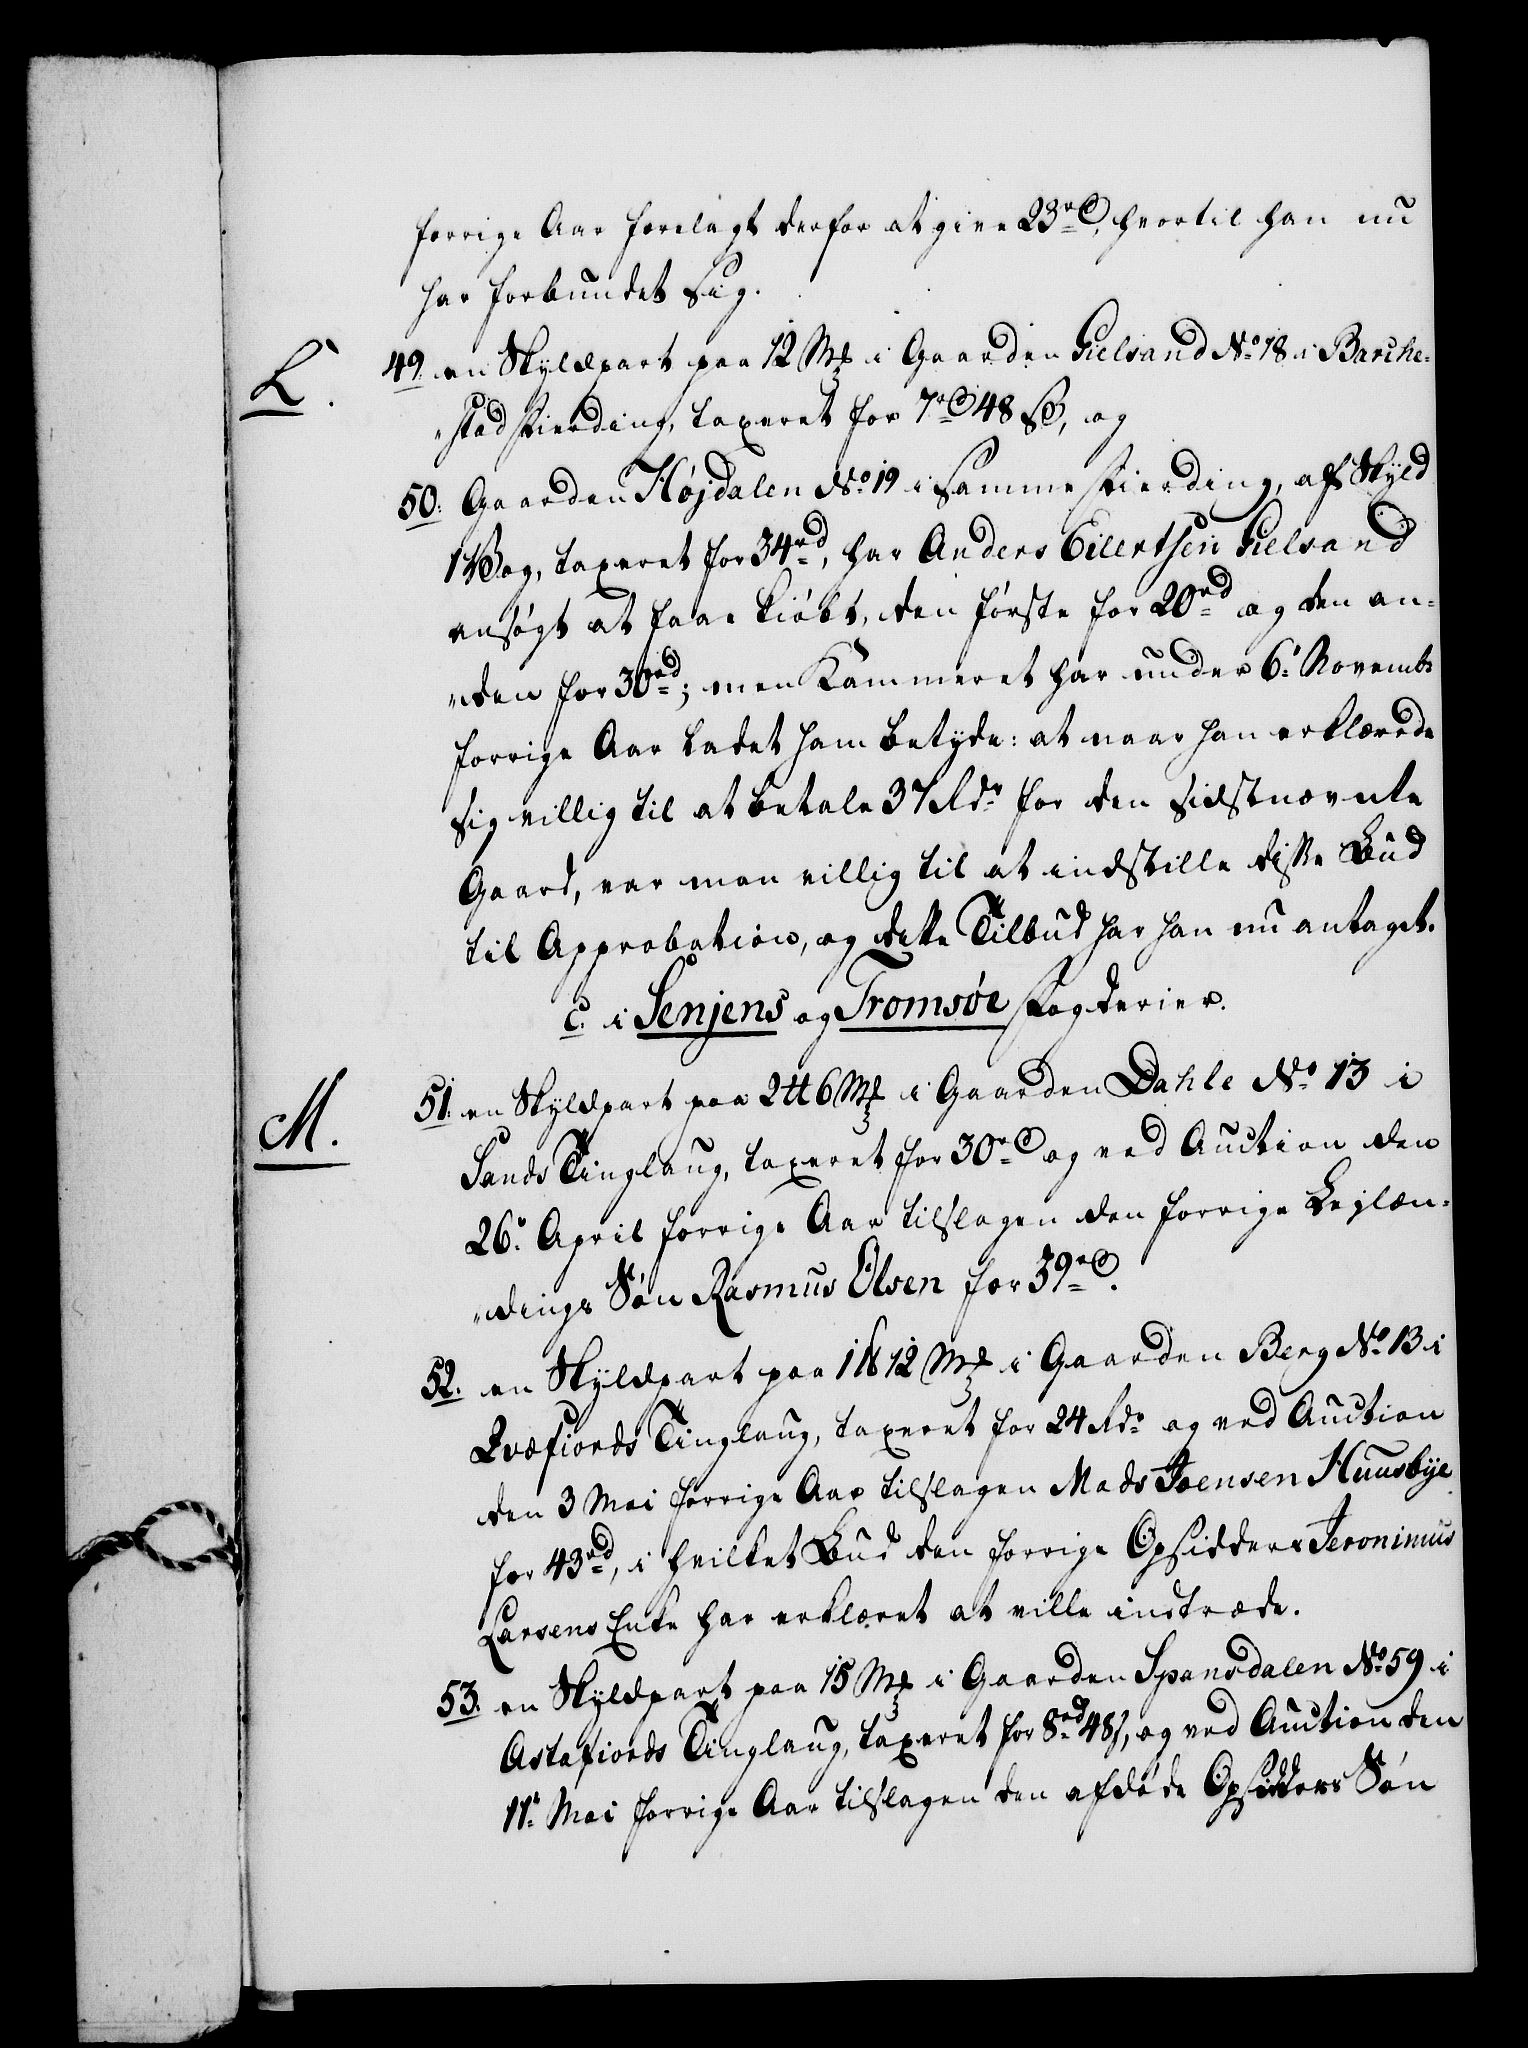 forrige Aar forelagt derfor at give 23rd, hvortil han nu
har forbundet sig.
L.
49. en Skyldpart paa 12 Mk i Gaarden Gielsand No 18 i Barche-
"stad Fierding, taxeret for 7rd 48 ß, og
50. Gaarden Højdalen No 19 i samme Fierding, af Skyld
1 Vog, taxeret for 34rd, har Anders Eilertsen Gielsand
ansøgt at faae kiøbt, den første for 20rd og den an-
"den for 30rd; men Kammeret har under 6. Novembr
forrige Aar ladet ham betyde: at naar han erklærede
sig villig til at betale 37 Rdr for den sidstnævnte
Gaard, var man villig til at indstille disse Bud
til Approbation, og dette Tilbud har han nu antaget.
c. i Senjens og Tromsøe Fogderier.
M.
51. en Skyldpart paa 2 ℔ 6 Mk i Gaarden Dahle No 13 i
Sands Tinglaug, taxeret for 30rd og ved Auction den
26. April forrige Aar tilslagen den forrige Leylæn-
"dings Søn Rasmus Olsen for 39rd.
52. en Skyldpart paa 1 ℔ 12 Mk i Gaarden Berg No 13 i
Qvæfiords Tinglaug, taxeret for 24 Rdr og ved Auction
den 3 Mai forrige Aar tilslagen Mads Joensen Huusbye
for 43rd, i hvilket Bud den forrige Opsidders Jeronimus
Larsens Enke har erklæret at ville indtræde.
53. en Skyldpart paa 15 Mk i Gaarden Spansdalen No 59 i
Astafiords Tinglaug, taxeret for 8rd 48 ß, og ved Auction den
11. Mai forrige Aar tilslagen den afdøde Opsidders Søn